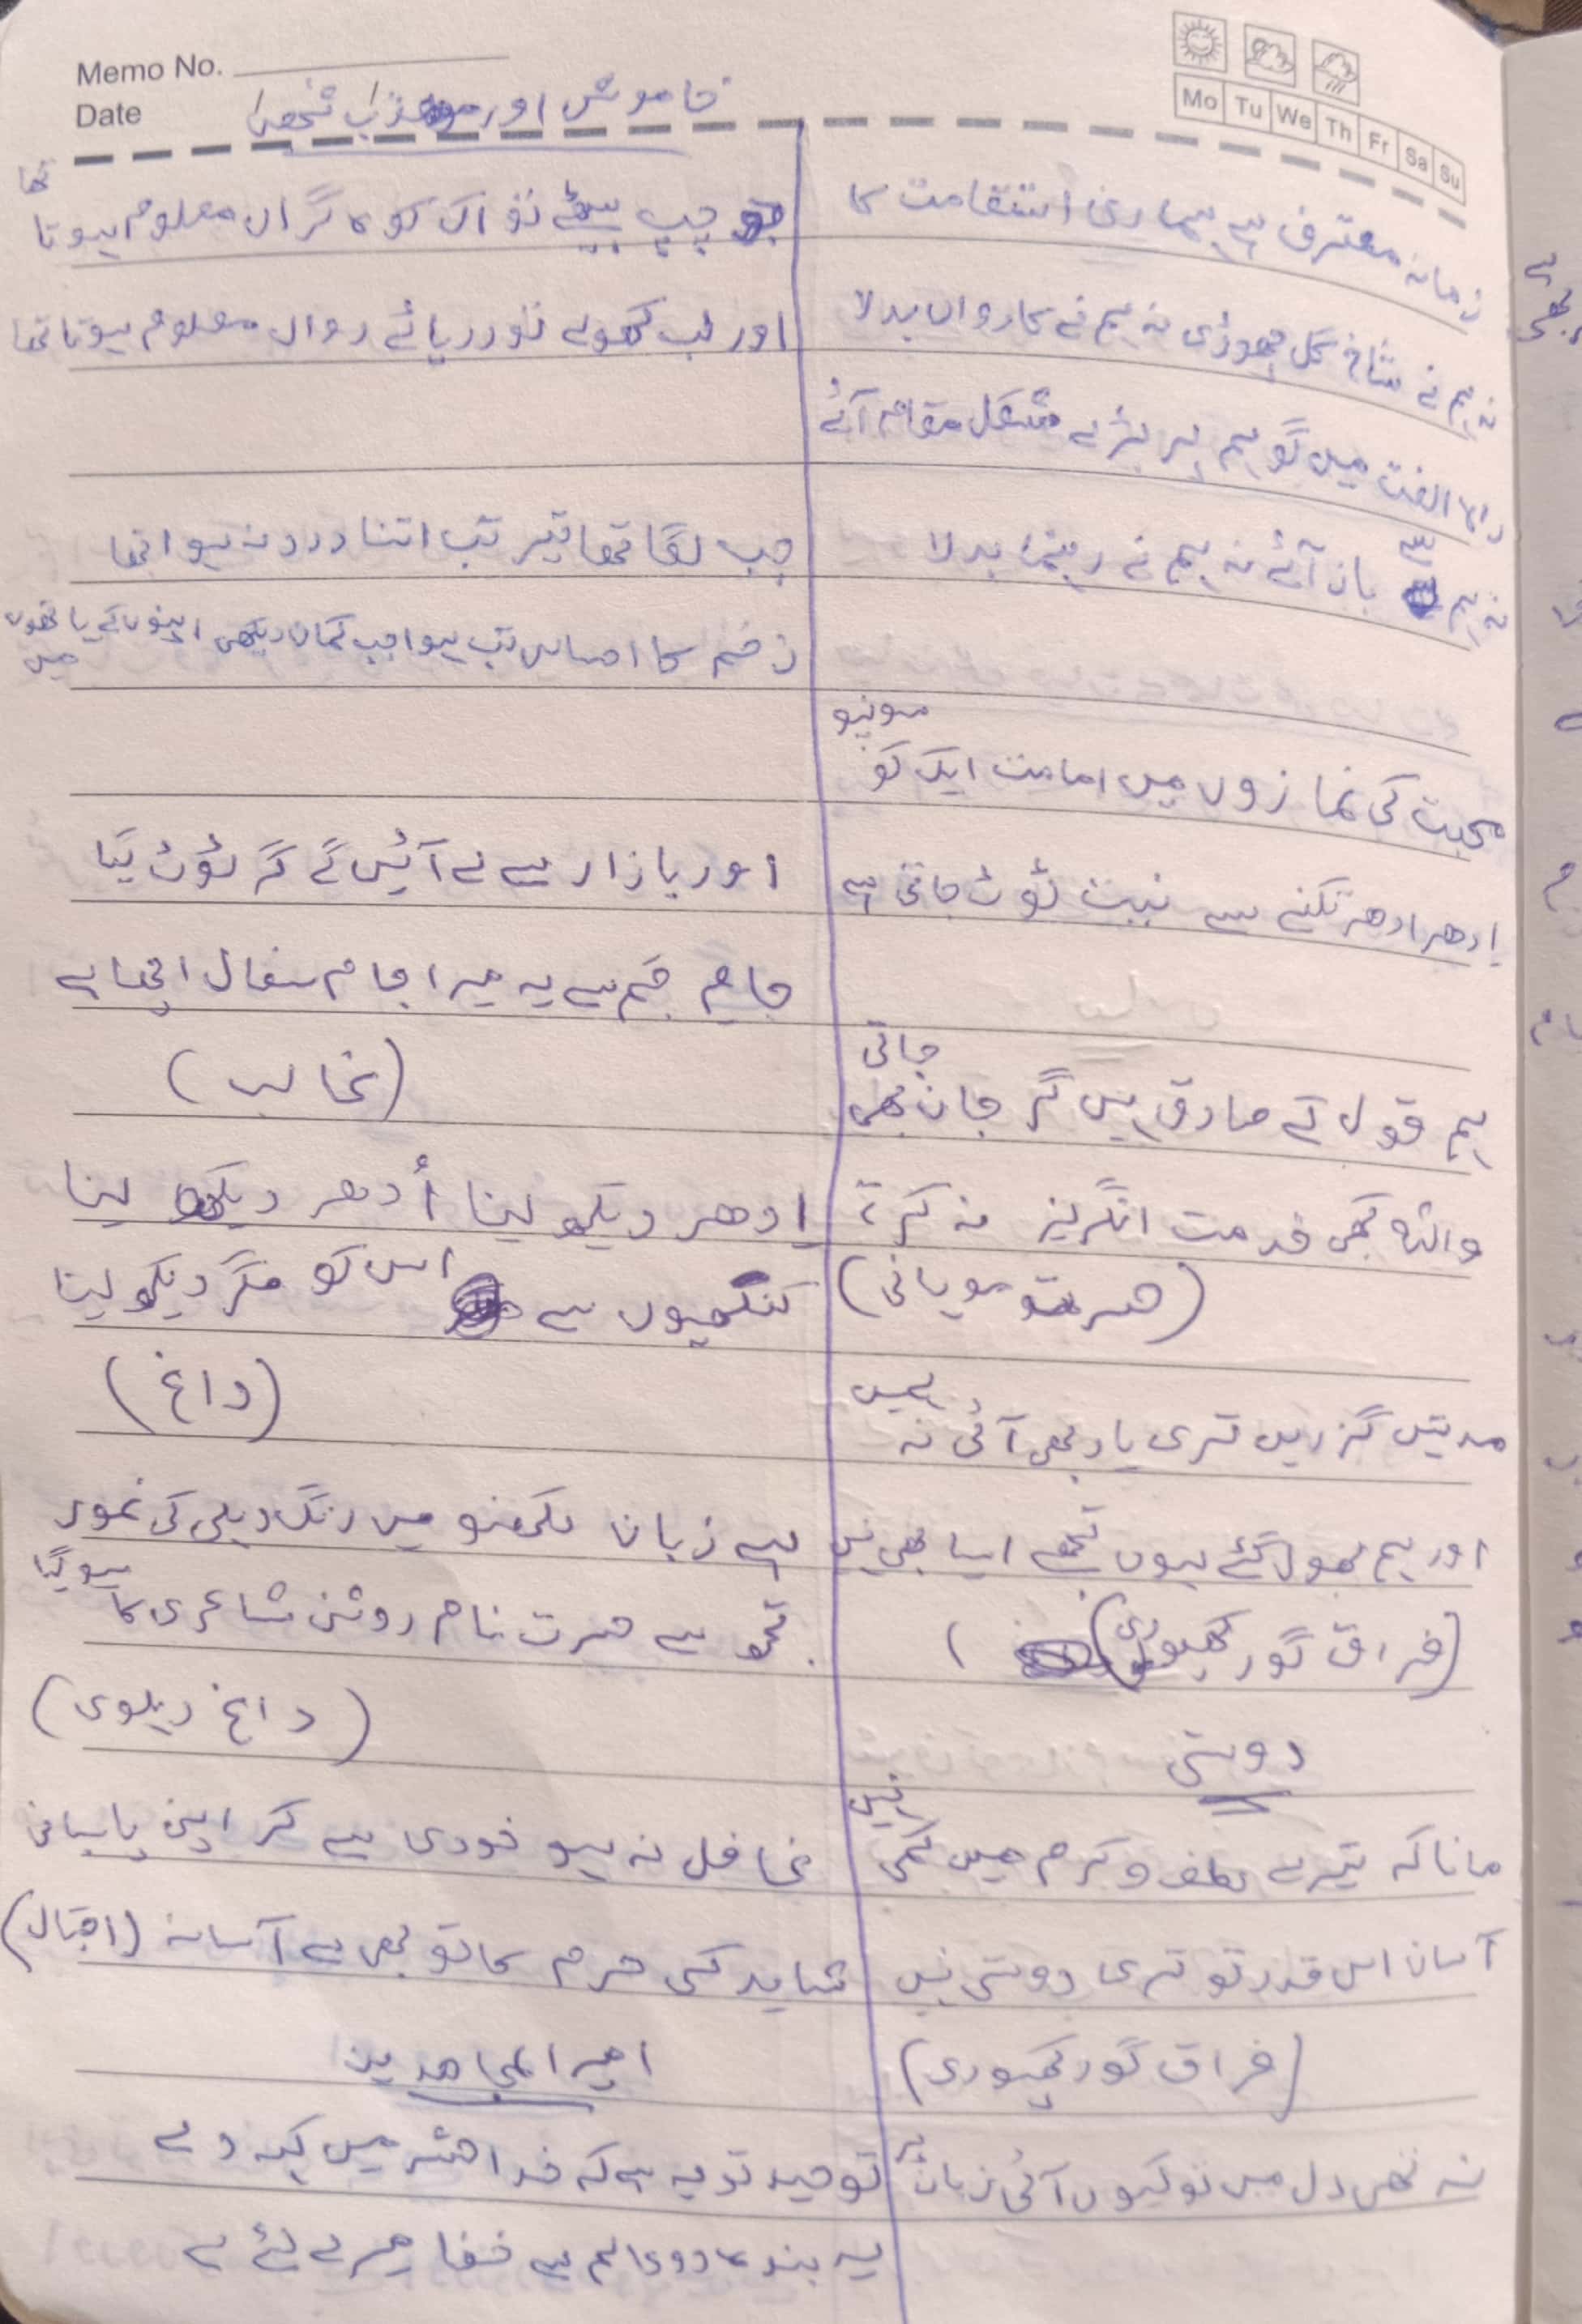 Memo No.
Date
Mo Tu We Th Fr Sa Su
زمانہ معترف ہے ہماری استقامت کا
نہ ہم نے شاخ گل چھوڑی نہ ہم نے کارواں بدلا
راہ الفت میں گو ہم پر بڑے مشکل مقام آئے
نہ ہم باز آئے نہ ہم نے رہنما بدلا
محبت کی نمازوں میں امامت ایک کو سونپو
ادھر ادھر تکنے سے نیت ٹوٹ جاتی ہے
ہم قول کے صادق ہیں گر جان بھی جاتی
واللہ کبھی خدمت انگریز نہ کرتے
(حسرت موہانی)
مدتیں گزریں تری یاد بھی آئی نہ ہمیں
اور ہم بھول گئے ہوں تجھے ایسا بھی نہیں
(فراق گورکھپوری)
دوستی
مانا کہ تیرے لطف و کرم میں کمی نہیں
آسان اس قدر تو تری دوستی نہیں
(فراق گورکھپوری)
نہ تھی دل میں تو کیوں آئی زبان پر
خاموش اور شخص
چپ بیٹھے تو اک کوہ گراں معلوم ہوتا تھا
اور لب کھولے تو دریائے رواں معلوم ہوتا تھا
جب لگا تھا تیر تب اتنا درد نہ ہوا تھا
زخم کا احساس تب ہوا جب کمان دیکھی اپنوں کے ہاتھوں میں
اور بازار سے لے آئیں گے گر ٹوٹ گیا
جام جم سے یہ میرا جام سفال اچھا ہے
(غالب)
ادھر دیکھ لینا اُدھر دیکھ لینا
کنکھیوں سے اس کو مگر دیکھ لینا
(داغ)
ہے زبان لکھنو میں رنگ دہلی کی نمود
تجھ سے حسرت نام روشن شاعری کا ہو گیا
(داغ دہلوی)
غافل نہ ہو خودی سے کر اپنی پاسبانی
شاید کسی حرم کا تو بھی ہے آستانہ (اقبال)
امیر المجاہدین
توحید تو یہ ہے کہ خدا حشر میں کہہ دے
یہ بندہ دو عالم سے خفا میرے لئے ہے